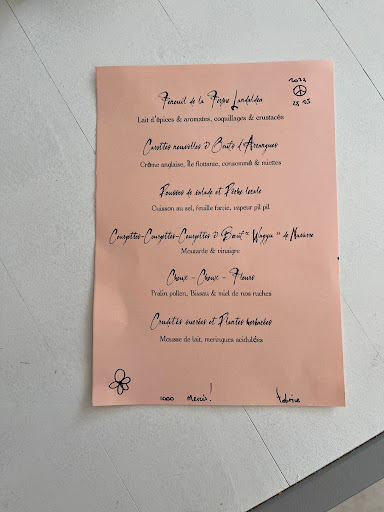 Fenouil de la Ferme Landaldea
2022
Lait d'épices & aromates, coquillages & crustacés
Carottes nouvelles & Oeufs d'Arcangues
Crème anglaise, île flottante, consommé & miettes
Pousses de salade et Pêche locale
Cuisson au sel, feuille farcie, vapeur pil pil
Courgettes-Courgettes-Courgettes & Bœuf "Wagyu" 4 Navarre
Moutarde & vinaigre
Choux - Choux - Fleurs
Pralin pollen, Bissau & miel de nos ruches
Crudités sucrées et Plantes herbacées
Mousse de lait, meringues acidulées
1000 Mercis!